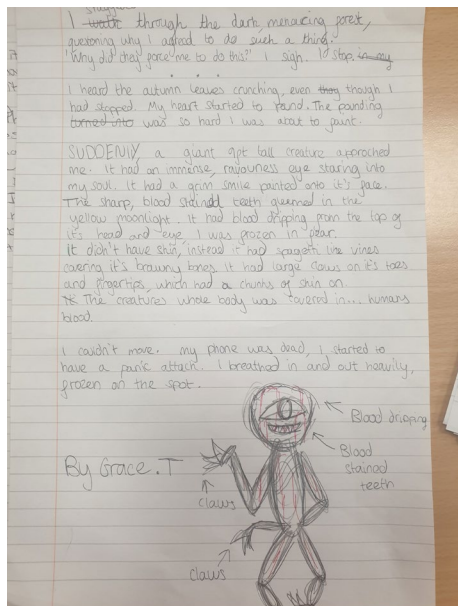 I walk through the dark menacing forest,
questioning why I agreed to do such a thing.
"Why did they force me to do this?" I sigh. I stop. in my
. . .
I heard the autumn leaves crunching, even thog though I
had stopped. My heart started to pound. The pounding
turned into was so hard I was about to faint.
SUDDENLY, a giant 9ft tall creature approched
me. It had an immense, ravouness eye staring into
my soul. It had a grim smile painted onto it's face.
The sharp, blood stained teeth gleemed in the
yellow moonlight. It had blood dripping from the top of
it's head and eye. I was frozen in fear.
It didn't have skin, instead it had spagetti like vines
covering it's brawny bones. It had large claws on it's toes
and fingertips, which had a chunks of skin on.
The creatures whole body was covered in... humans
blood.
I couldn't move. my phone was dead, I started to
have a panic attack. I breathed in and out heavily,
frozen on the spot.
Blood dripping
Blood
stained
teeth
By Grace.T
claws
claws